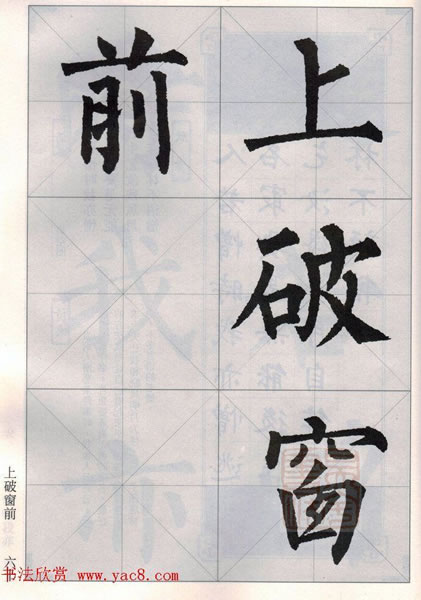 上破窗
前
上破窗前 六
书法欣赏 www.yac8.com